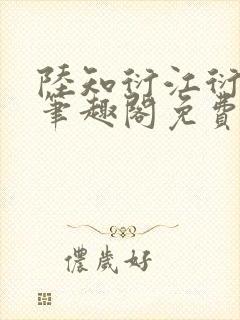 陸知衍江衍
筆趣閣免費
儂歲好